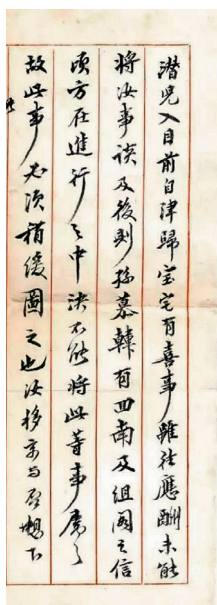 潜兒入目前自津歸宝宅有喜事雖往應酬未能
將汝事談及後則孫慕韓有回南及組閣之信
頃方在進行之中決不能將此等事屬之
故此事必須稍緩圖之也汝移京与啟鄉下